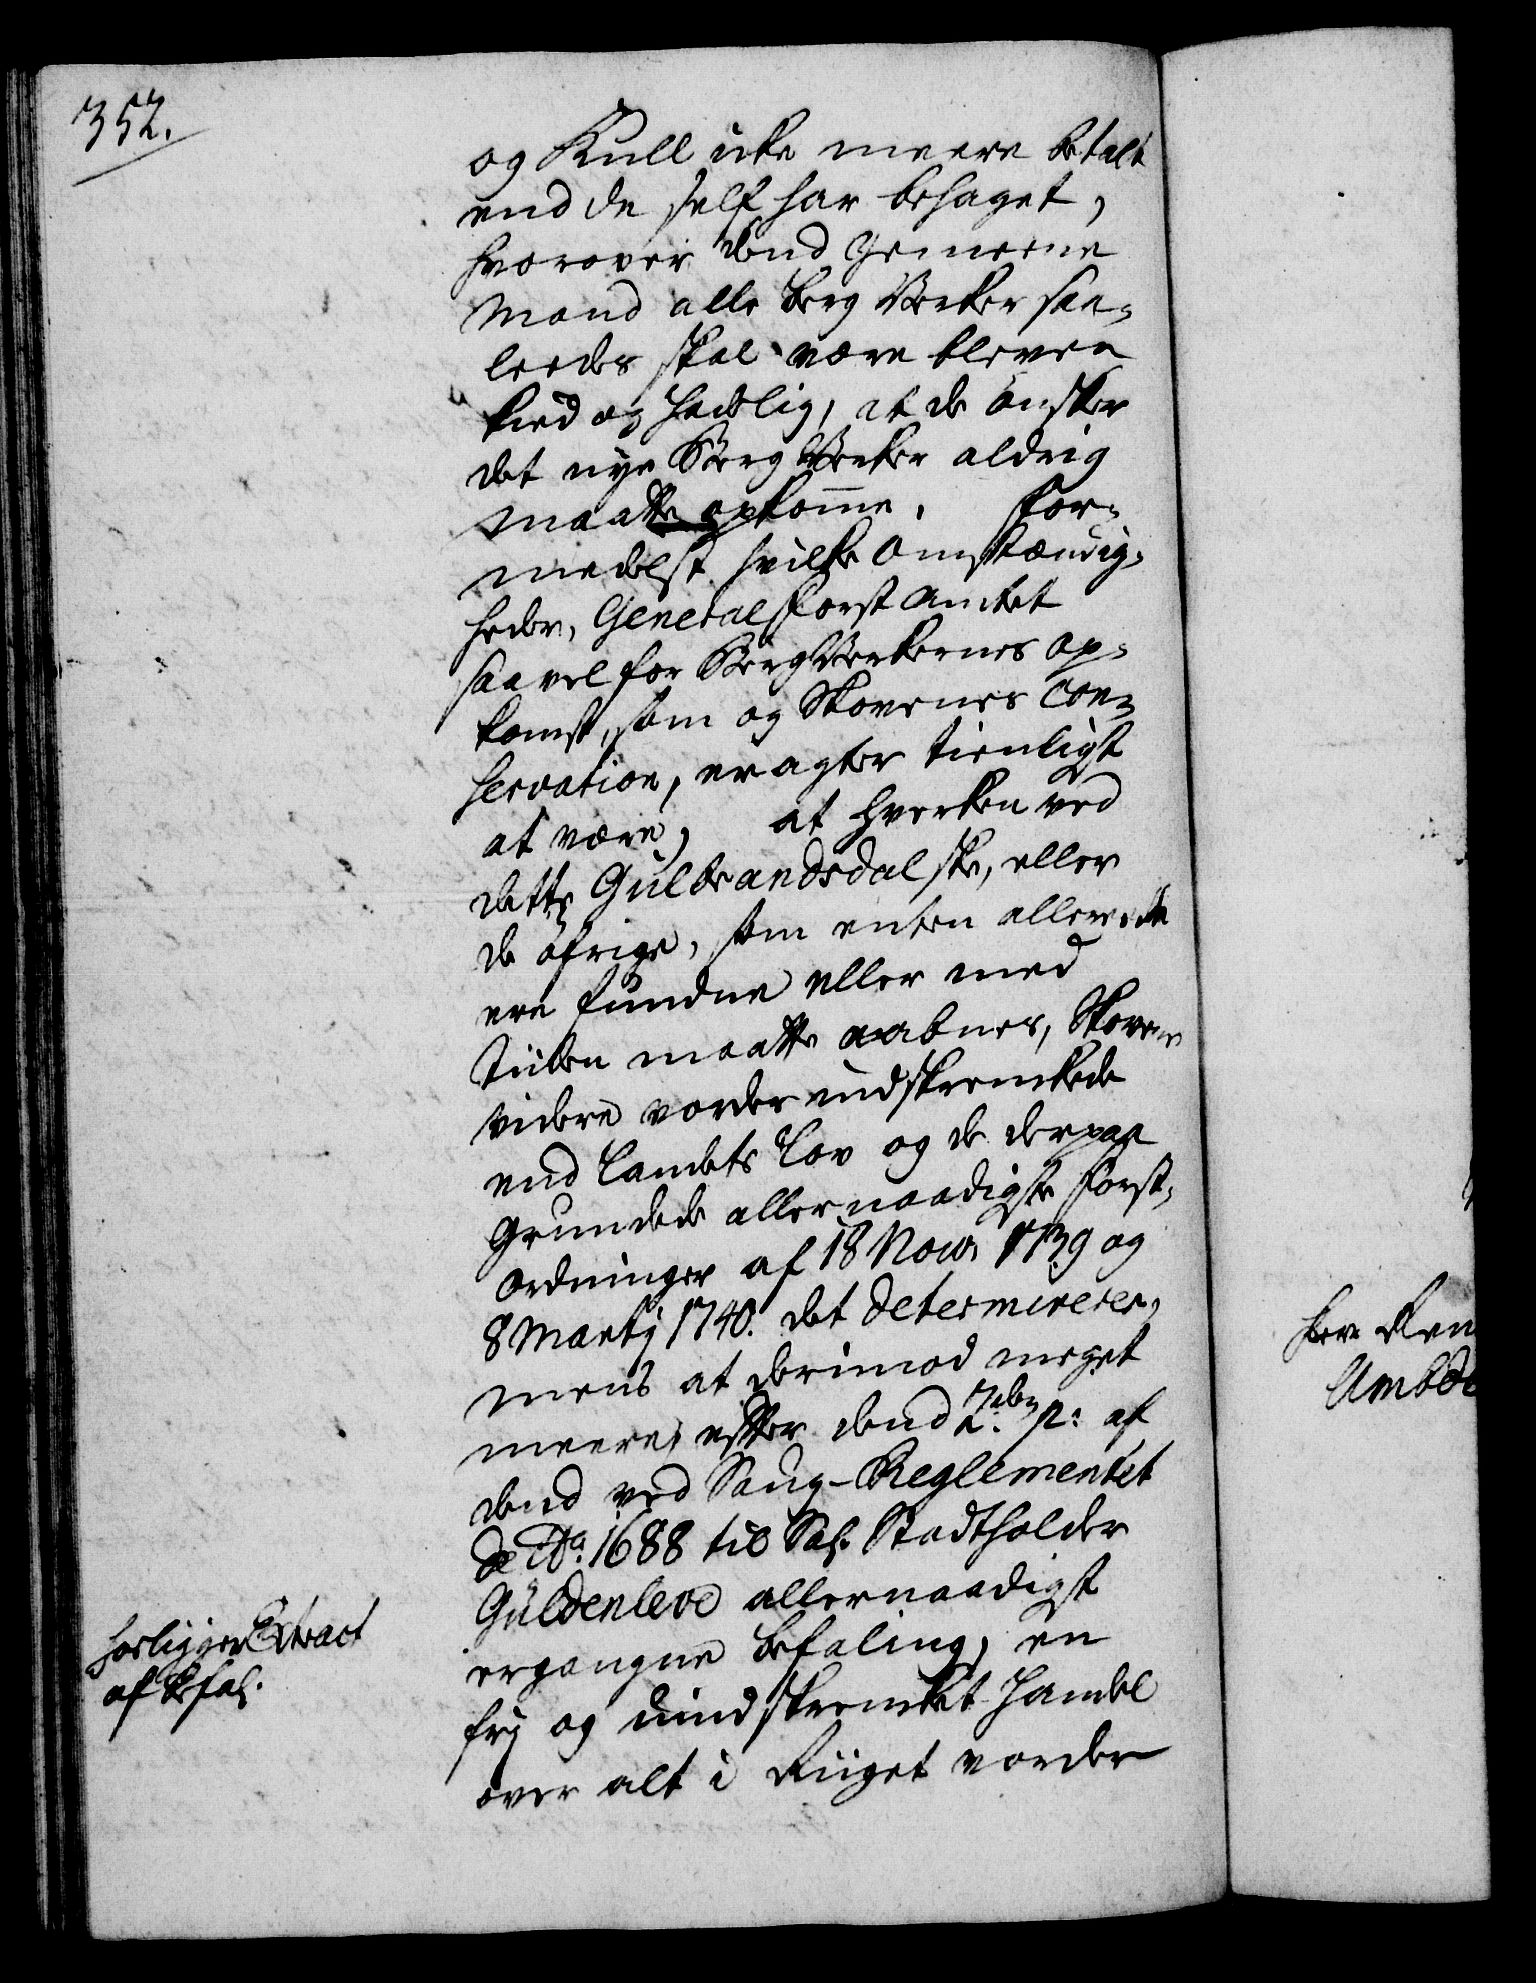 352.
og Kull icke meere betalt
end de self har behaget,
hvorover dend gemeene
Mand alle berg Verker saa-
leedes skal være bleven
kied og hadelig, at de ønsker
det nye Berg Verker aldrig
maatte opkom̅e. For-
medelst hvilke omstændig-
heder, General Forst Amtet
saavel for Berg Verkernes op-
komst, som og Skovenes Con-
servation, eragter tienligst
at være, at hverken ved
dette Gulbrandsdalske, eller
de øfrige, som enten allerede
ere fundne eller med
Tiiden maatte aabnes, Skovene
videre vorder indskrenckede
end Landets Lov og de derpaa
grundede allernaadigste Forst-
Ordninger af 18 Nov. 1739 og
8 Martj 1740. det determinerer,
mens at derimod meget
meere, efter dend 2den p: af
dend ved Saug-Reglementet
de Ao. 1688 til Sal. Stadtholder
Güldenleve allernaadigst
ergangne befaling, en
frj og uindskrencket Handel
over alt i Riiget vorder
hosligger Extract
af befal.